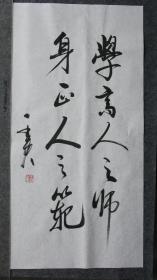 學高人之师
身正人之範